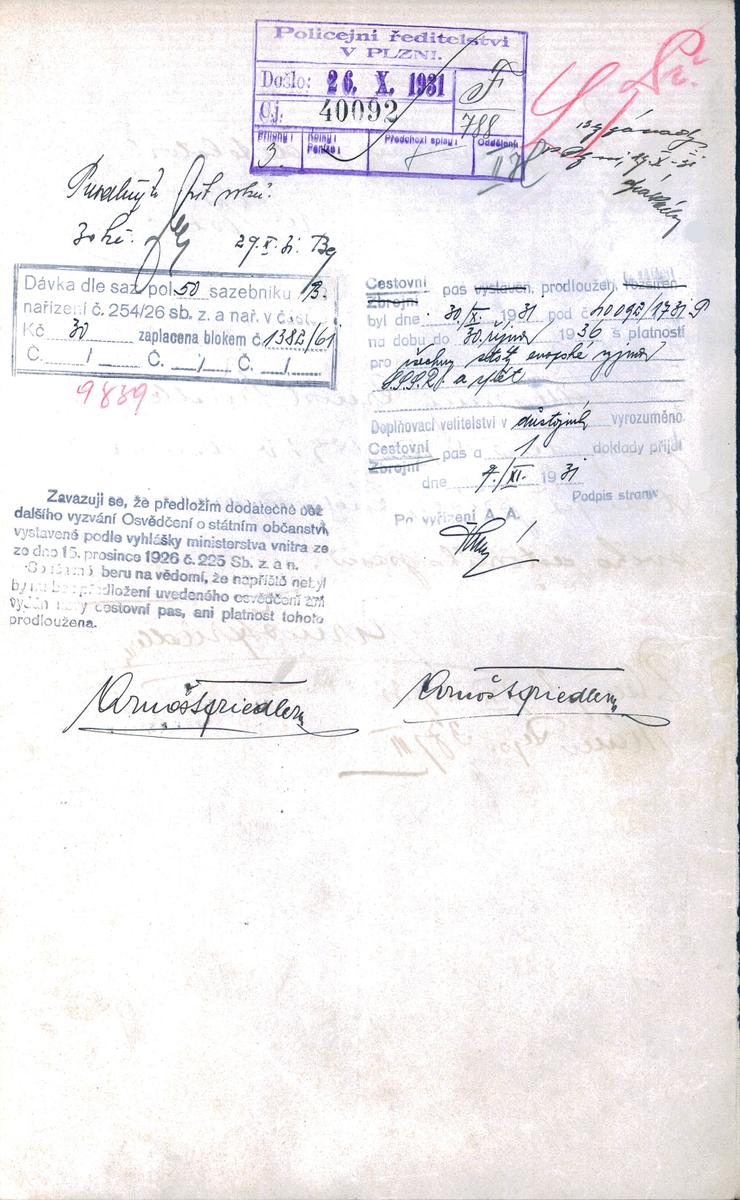 Policejní ředitelství
V PLZNI.
Došlo: 26. X. 1931
Čj. 40092
F
788
Přílohy: Kolky: Předchozí spisy: Oddělení:
3.
29.X.31.
Dávka dle saz. pol. 50 sazebníku B.
nařízení č. 254/26 sb. z. a nař. v část.
Kč 30 zaplacena blokem č. 1382/61
Č. / Č. / Č. /
9839
Cestovní pas vystaven, prodloužen, rozšířen
Zbrojní
byl dne 30/X. 1931 pod č. 40092/1731 P
na dobu do 30. října 1936 s platností
pro všechny státy evropské vyjma
S.S.S.R. a zpět
Doplňovací velitelství v důstojník vyrozuměno
Cestovní pas a 1 doklady přijal
Zbrojní
dne 7./XI. 1931
Podpis strany
Po vyřízení A. A.
Zavazuji se, že předložím dodatečně bez
dalšího vyzvání Osvědčení o státním občanství,
vystavené podle vyhlášky ministerstva vnitra ze
ze dne 15. prosince 1926 č. 225 Sb. z. a n.
Současně beru na vědomí, že napříště nebyl
by mi bez předložení uvedeného osvědčení ani
vydán nový cestovní pas, ani platnost tohoto
prodloužena.
Arnošt Friedler
Arnošt Friedler